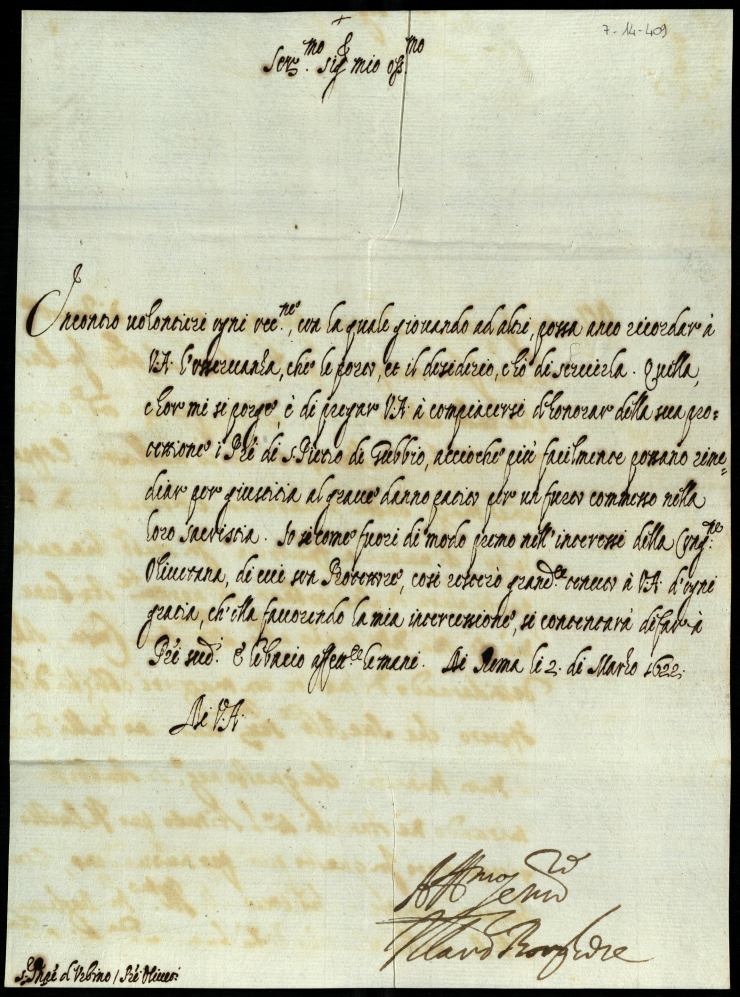 7-14-409
Ser.mo sig.r mio oss.mo
Incontro volontieri ogni occ.ne, con la quale giovando ad altri, possa anco ricordar à
V.A. l'osservanza, che le porto, et il desiderio, c'hò di servirla. Quella,
c'hor mi si porge, è di pregar V.A. à compiacersi di honorar della sua pro=
tettione i Pr̃i di s. Pietro di Gubbio, accioche più facilmente possano rime=
diar per giustitia al grave danno patito per un furto commesso nella
loro Sacristia. Io si come fuori di modo premo nell'interessi della Cong.ne
Olivetana, di cui son Protettore, così resterò grand.te tenuto à V.A. d'ogni
gratia, ch'ella favorendo la mia intercessione, si contentarà di far à
Pr̃i sud.i E le bacio affett.te le mani. Di Roma li 2. di Marzo 1622.
Di V.A.
Aff.mo ser.re
Il Card. Borghese
s. Duca d'Urbino / Pr̃i Olivet.i